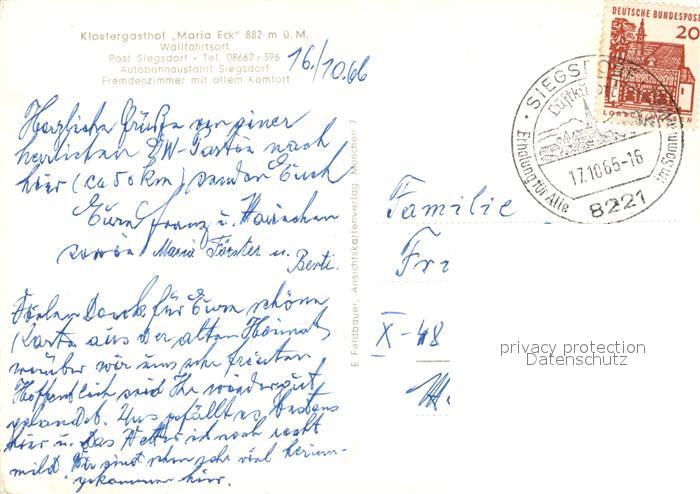 Klostergasthof „Maria Eck" 882 m ü. M.
Wallfahrtsort
Post Siegsdorf - Tel. 08662/396
Autobahnausfahrt Siegsdorf
Fremdenzimmer mit allem Komfort
16./10.66
Herzliche Grüße von einer
herrlichen PKW-Partie nach
hier (ca 50 km) senden Euch
Eure Franz u.
sowie Maria Förster u.
Berti.
Vielen Dank für Eure schöne
Karte aus der alten Heimat,
worüber wir uns sehr freuten
Hoffentlich seid Ihr wieder gut
gelandet. Uns gefällt es bestens
hier u. das Wetter ist noch recht
mild. Wir sind schon sehr viel herum-
gekommen hier.
E. Feldbauer, Ansichtskartenverlag, München 7
DEUTSCHE BUNDESPOST
20
LORSCH HESSEN
SIEGSDORF
Luftkurort
17.10.65-16
Erholung für Alle
im Sommer
8221
Familie
Fr
X-48
privacy protection
Datenschutz